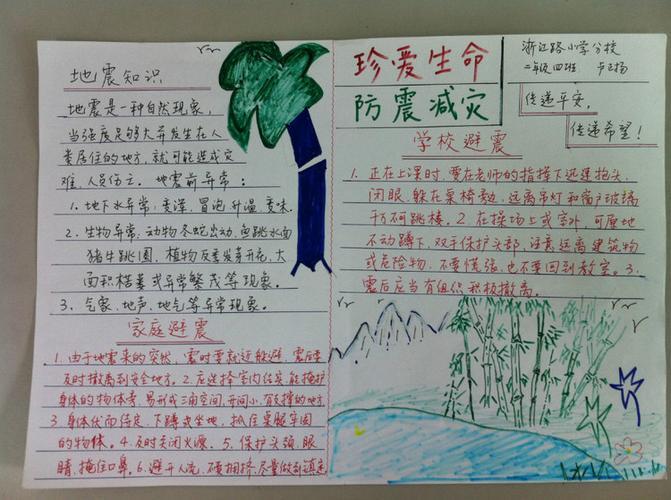 地震知识
地震是一种自然现象，
当强度足够大并发生在人
类居住的地方，就可能造成灾
难、人员伤亡。地震前异常：
1、地下水异常，变浑，冒泡，升温，变味。
2、生物异常，动物冬蛇出动，鱼跳水面
猪牛跳圈，植物反季发青开花，大
面积枯萎或异常繁茂等现象。
3、气象、地声、地气等异常现象。
家庭避震
1、由于地震来的突然，震时要就近躲避，震后要
及时撤离到安全地方。2、应选择室内结实，能掩护
身体的物体旁，易形成三角空间，开间小，有支撑的地方
3、身体伏而待定，下蹲或坐地，抓住桌腿牢固
的物体。4、及时关闭火源。5、保护头颈、眼
睛，掩住口鼻。6、避开人流，不要拥挤，尽量做到镇定
珍爱生命
防震减灾
浙江路小学分校
二年级四班
传递平安，
传递希望！
学校避震
1、正在上课时，要在老师的指挥下迅速抱头，
闭眼、躲在桌椅旁，远离吊灯和窗户玻璃
千万不可跳楼。2、在操场上或室外，可原地
不动蹲下，双手保护头部，注意远离建筑物
或危险物，不要慌张，也不要回到教室。3、
震后应当有组织积极撤离。